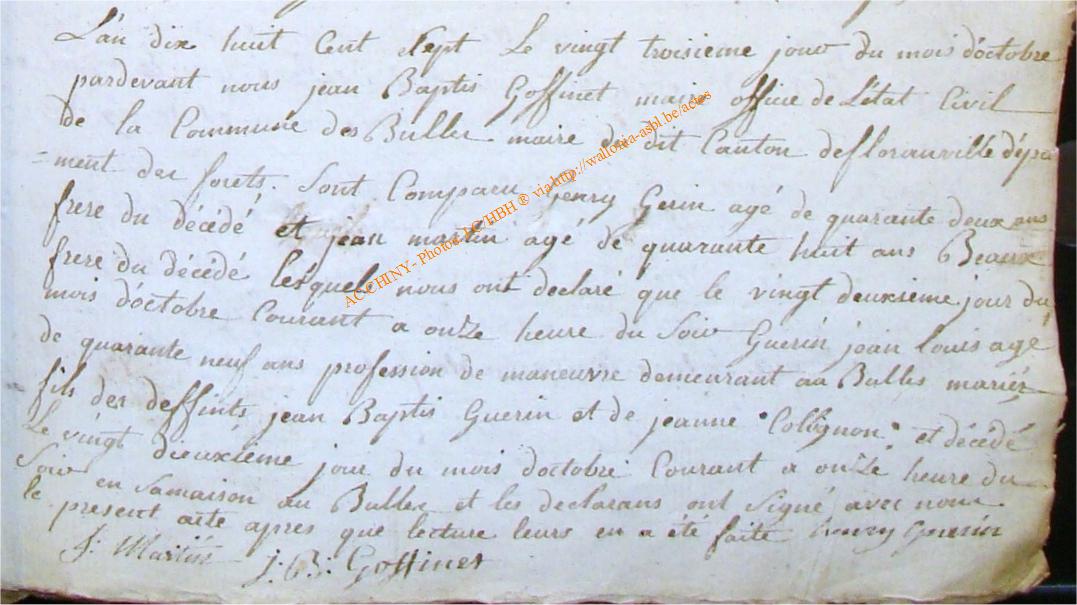 L'an dix huit Cent Sept Le vingt troisieme jour du mois d'octobre
pardevant nous jean Baptis Goffinet maire office de L'état Civil
de la Commune des Bulles maire du dit Canton de floranville dépa
=ment des forets. sont Comparu henry Gerin agé de quarante deux ans
frere du décédé et jean martin agé de quarante huit ans Beaux
frere du décédé lesquels nous ont declaré que le vingt deuxsieme jour du
mois d'octobre Courant a onze heure du Soir Guerin jean louis agé
de quarante neuf ans profession de maneuvre demeurant au Bulles mariéz
fils des deffints jean Baptis Guerin et de jeanne Collignon, et décédé
Le vingt dieuxieme jour du mois d'octobre Courant a onze heure du
Soir en Samaison au Bulles et les declarans ont Signé avec nous
le present acte apres que lecture leurs en a été faite henry Guerin
J: Martin J: B: Goffinet
AC CHINY- Photos LC/HBH ® via http://wallonia-asbl.be/actes